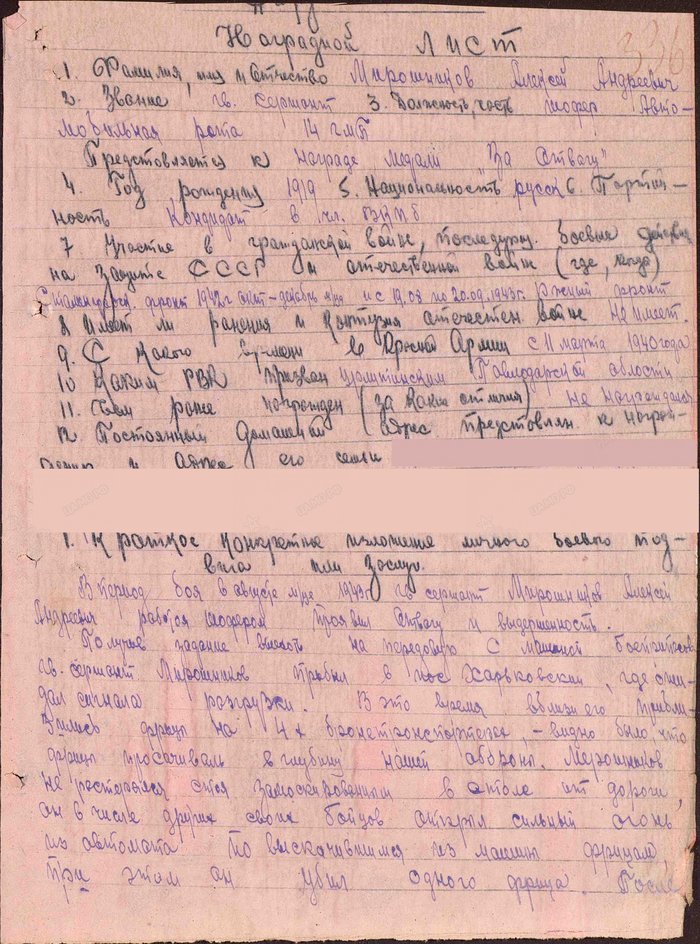 336
Наградной Лист
1. Фамилия, имя и Отчество Мирошников Алексей Андреевич
2. Звание гв. сержант 3. Должность, часть шофер Авто-
мобильная рота 14 гмп
Представляется к награде медали "За Отвагу"
4. Год рождения 1919 5. Национальность русск 6. Партий-
ность Кандидат в чл. ВКПб
7 Участие в гражданской войне, последующ. боевых действ
на защите СССР и отечественной войн (где, когда)
фронт 1942г окт-декабрь м-ца и с 19.08 по 20.09.1943г. Южный фронт
8 Имеет ли ранения и контузия отечествен войне Не имеет.
9. С какого времени в Красной Армии с 11 марта 1940 года
10 Каким РВК призван Павлодарской области
11. Чем ранее награжден (за какие отличия) не награждался
12. Постоянный домашний адрес представлен. к награж-
дению и адрес его семьи
ЦАМО.РФ ЦАМО.РФ
1. Краткое конкретное изложение личного боевого под-
вига или заслуг.
В период боя в августе м-це 1943г гв сержант Мирошников Алексей
Андреевич работая шофером проявил отвагу и выдержанность.
Получив задание выехать на передовую с машиной боеприпасов
гв. сержант Мирошников прибыл в пос Харьковский, где ожи-
дал сигнала разгрузки. В это время вблизи его прибли-
зились фрицы на 4х бронетранспортерах, - видно было, что
фрицы просачивали в глубину нашей обороны. Мирошников
не растерялся стоя замаскированным в от дороги,
он в числе других своих бойцов открыл сильный огонь
из автомата по выскочившимся из машины фрицам,
при этом он убил одного фрица. После